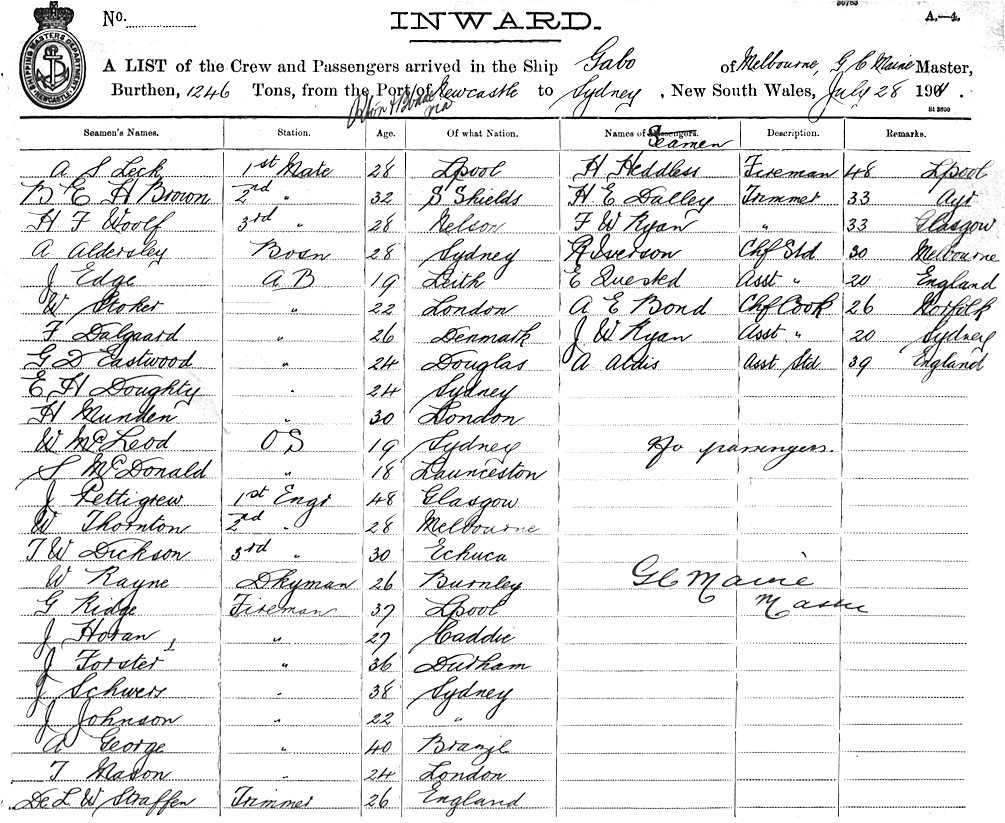 36763
No. INWARD. A.—4.
SHIPPING MASTERS DEPARTMENT NEWCASTLE
A LIST of the Crew and Passengers arrived in the Ship Gabo of Melbourne, G C Maine Master,
Burthen, 1246 Tons, from the Port of Newcastle to Sydney, New South Wales, July 28 1901.
via
St 3600
Seamen's Names. Station. Age. Of what Nation. Names of Passengers. Description. Remarks.
Seamen
A S Leck 1st Mate 28 Lpool H Heddless Fireman 48 Lpool
B E H Brown 2nd " 32 S Shields H E Dalley Trimmer 33 Ayr
H F Woolf 3rd " 28 Nelson F W Ryan " 33 Glasgow
A Aldersley Bosn 28 Sydney R Iverson Chf Std 30 Melbourne
J Edge A B 19 Leith E Quested Asst " 20 England
W Stoker " 22 London A E Bond Chf Cook 26 Norfolk
F Dalgaard 26 Denmark J W Ryan Asst " 20 Sydney
G D Eastwood " 24 Douglas A Aldis Asst Std 39 England
E H Doughty " 24 Sydney
H Munden " 30 London
W McLeod O S 19 Sydney No passengers.
S McDonald " 18 Launceston
J Pettigrew 1st Engr 48 Glasgow
W Thornton 2nd " 28 Melbourne
T W Dickson 3rd " 30 Echuca
W Rayne Dkyman 26 Burnley G C Maine
G Ridge Fireman 37 Lpool Master
J Horan " 27 Caddie
J Forster " 36 Durham
J Schwers " 38 Sydney
J Johnson " 22 "
A George " 40 Branzil
T Mason " 24 London
De L W Straffen Trimmer 26 England